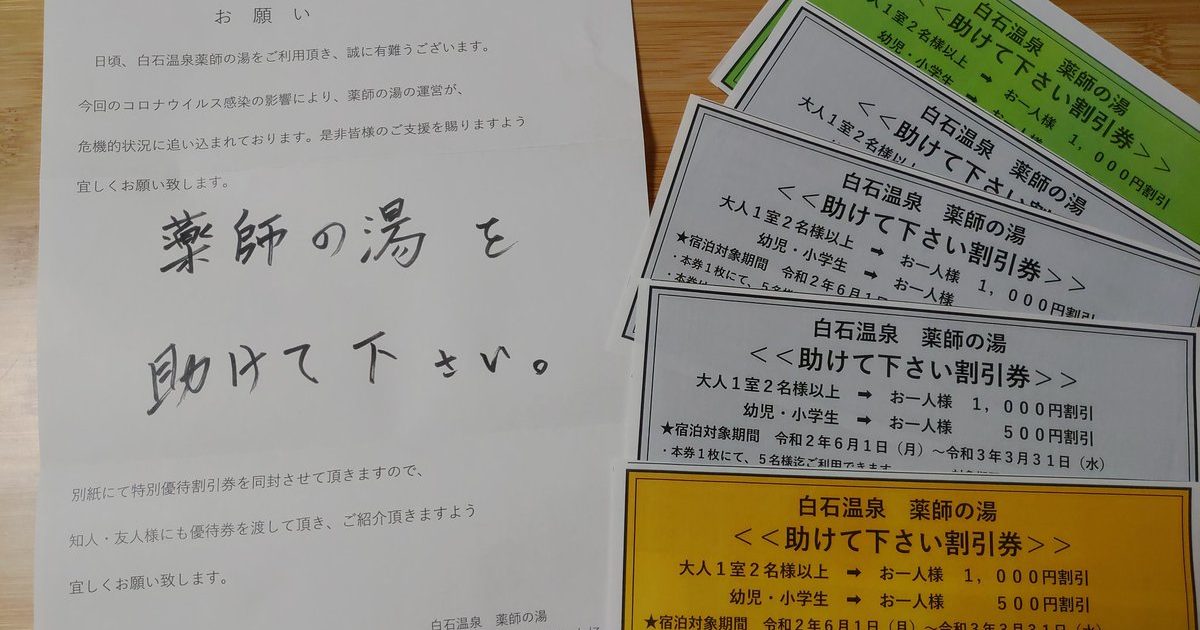 お願い
日頃、白石温泉薬師の湯をご利用頂き、誠に有難うございます。
今回のコロナウイルス感染の影響により、薬師の湯の運営が、
危機的状況に追い込まれております。是非皆様のご支援を賜りますよう
宜しくお願い致します。
薬師の湯を
助けて下さい。
別紙にて特別優待割引券を同封させて頂きますので、
知人・友人様にも優待券を渡して頂き、ご紹介頂きますよう
宜しくお願い致します。
白石温泉 薬師の湯
白石温泉 薬師の湯
<<助けて下さい割引券>>
大人1室2名様以上 ➡ お一人様 1,000円割引
幼児・小学生 ➡
白石温泉 薬師の湯
<<助けて下さい割
大人1室2名様以上
白石温泉 薬師の湯
<<助けて下さい割引券>>
大人1室2名様以上 ➡ お一人様 1,000円割引
幼児・小学生 ➡ お一人様
★宿泊対象期間 令和2年6月1日
・本券1枚にて、5名様
白石温泉 薬師の湯
<<助けて下さい割引券>>
大人1室2名様以上 ➡ お一人様 1,000円割引
幼児・小学生 ➡ お一人様 500円割引
★宿泊対象期間 令和2年6月1日(月)~令和3年3月31日(水)
・本券1枚にて、5名様迄ご利用できます
白石温泉 薬師の湯
<<助けて下さい割引券>>
大人1室2名様以上 ➡ お一人様 1,000円割引
幼児・小学生 ➡ お一人様 500円割引
★宿泊対象期間 令和2年6月1日(月)~令和3年3月31日(水)